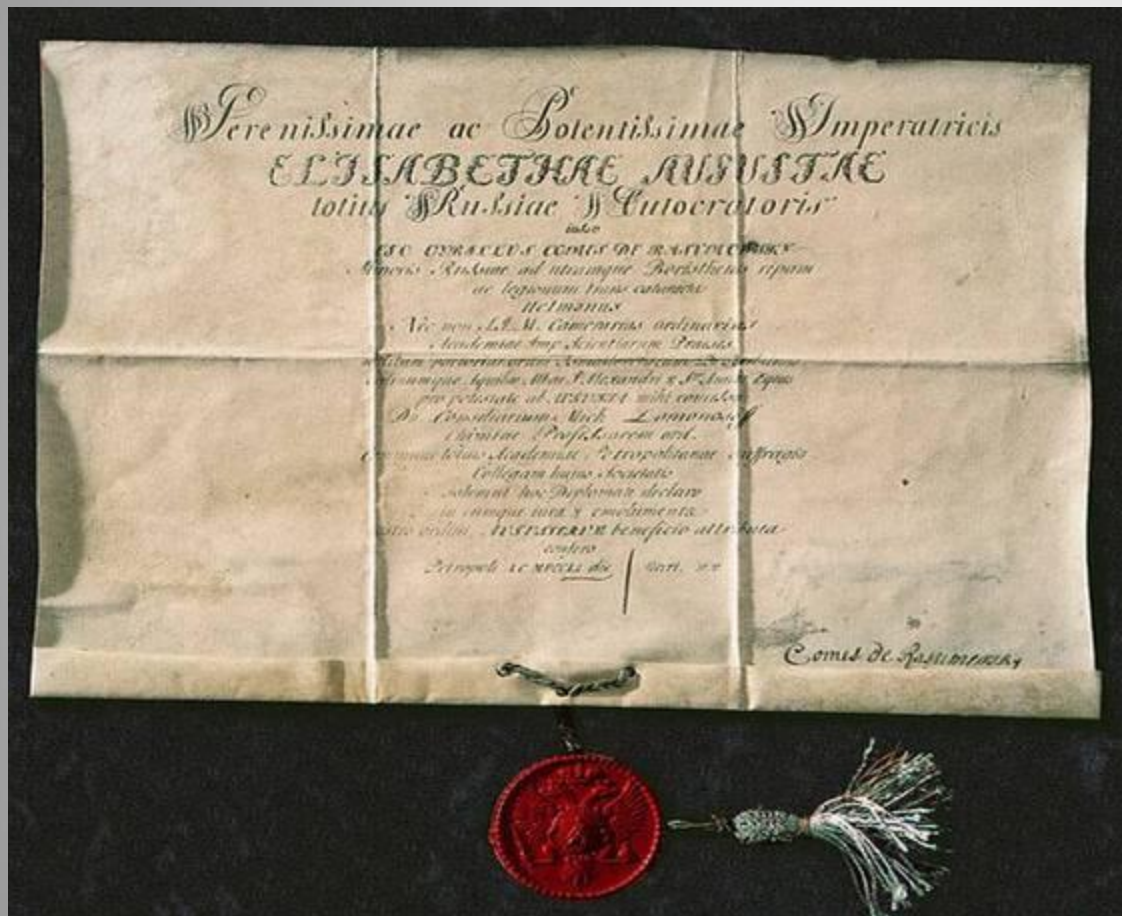 Serenissimae ac Potentissimae Imperatricis
ELISABETHAE AUGUSTAE
totius Russiae Autocratoris
iussu
EGO CYRILLUS COMES DE RASUMOWSKY
Minoris Russiae ad utramque Boristhenis ripam
ac legionum trans catarractas
Hetmanus
Nec non S.I.M. Camerarius ordinarius
Academiae Imp Scientiarum Praeses
Aquilae Albae S. Alexandri & Stae Annae Eques
pro potestate ab AUGUSTA mihi concessa
Dn. Consiliarium Mich Lomonosoff
Chimiae Professorem ord.
communi totius Academiae Petropolitanae suffragio
Collegam huius Societatis
solemni hoc Diplomate declaro
in eumque iura & emolumenta
ordini AUGUSTAE beneficio attributa
confero
Petropoli die
Comes de Rasumowsky